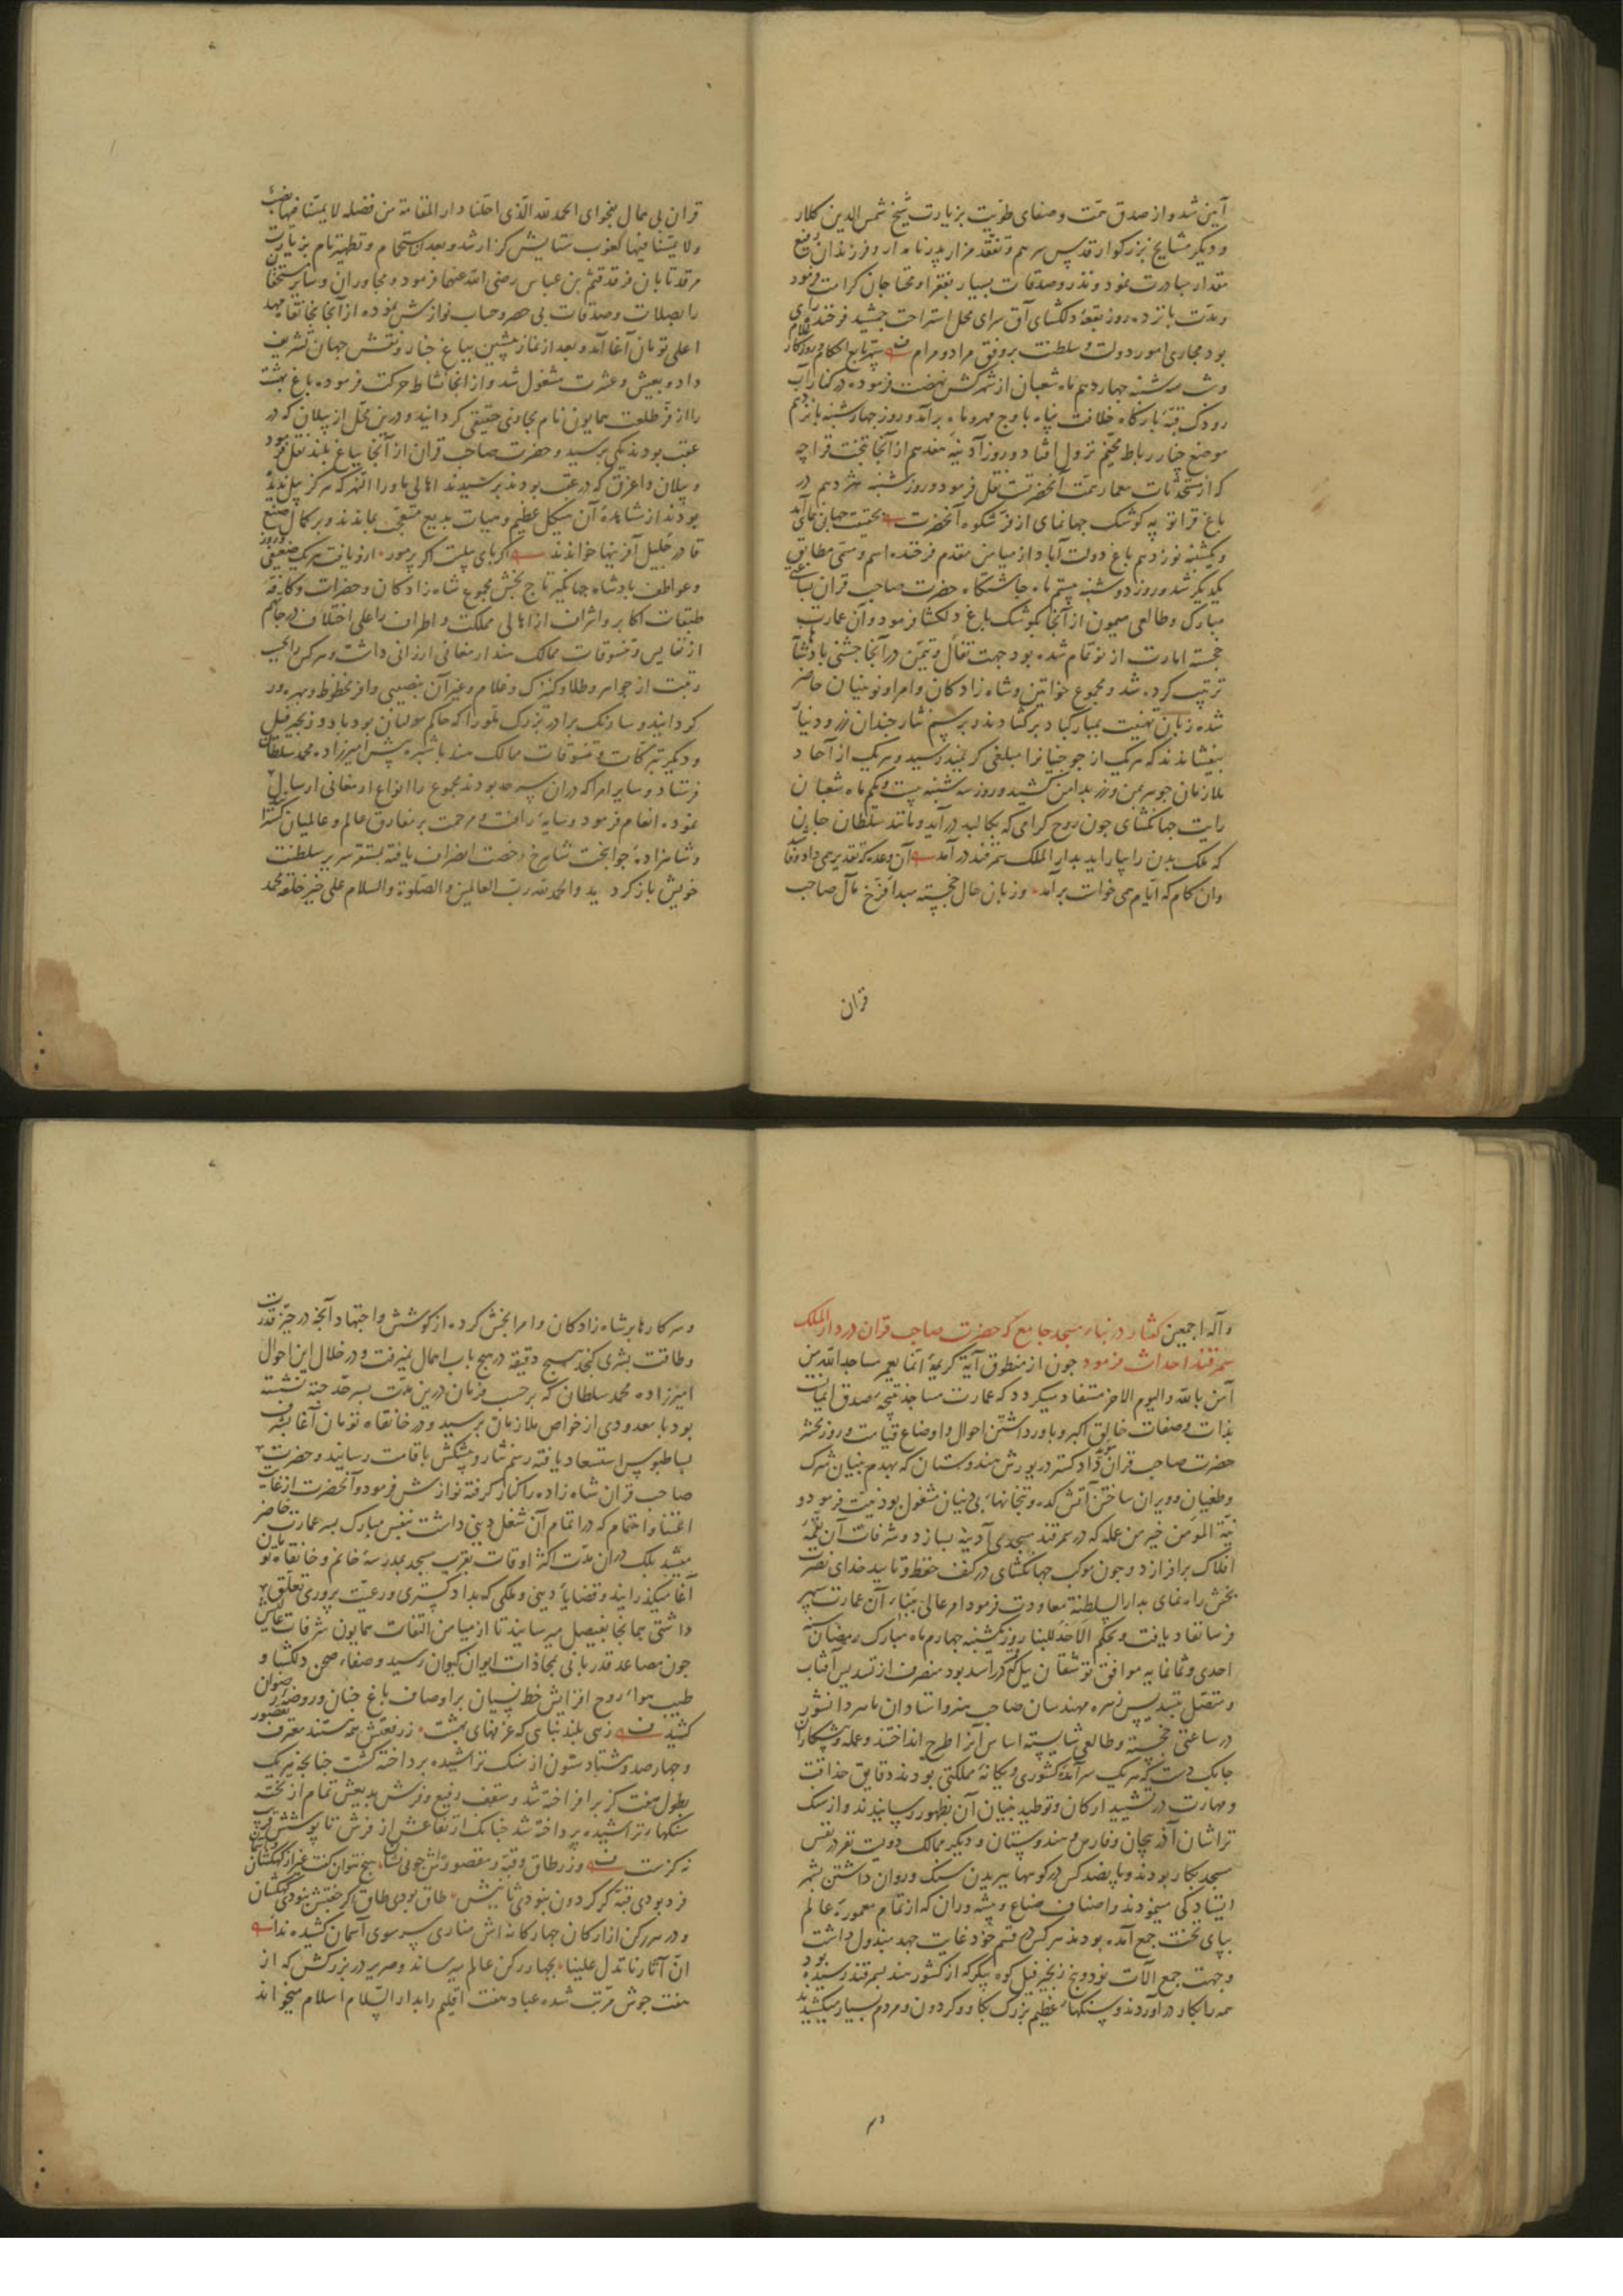 آیین شد و از صدق همت و صفای طویت بزیارت شیخ شمس الدین کلار
و دیگر مشایخ بزرگوار قدس سرهم و تفقد مزار پدر نامدار و فرزندان رفیع
مقدار مبادرت نمود و نذر و صدقات بسیار بفقرا و محتاجان کرامت فرمود
و مدت پانزده روز بقعهٔ دلکشای آق سرای محل استراحت جمشید فرخنده رای
بود مجاری امور دولت و سلطنت بر وفق مراد و مرام سپهر تابع احکام و روزکار غلام
و شب سه شنبه چهاردهم ماه شعبان از شهر کش نهضت فرموده در کنار آب
رودک قبهٔ بارکاه خلافت پناه باوج مهر و ماه برآمد و روز چهارشنبه پانزدهم
موضع چنار رباط مخیم نزول افتاد و روز آدینه هفدهم از آنجا بتخت قراچه
که از مستحدثات معمار همت آنحضرتست نقل فرمود و روز شنبه هژدهم در
باغ قراتوپه کوشک جهانمای از فر شکوه آنحضرت بحقیقت جهان نمای آمد
و یکشنبه نوزدهم باغ دولت آباد از میامن مقدم فرخنده اسم و مسمی مطابق
یکدیکر شد و روز دوشنبه بیستم ماه چاشتگاه حضرت صاحب قران بساعتی
مبارک و طالعی میمون از آنجا بکوشک باغ دلکشا فرمود و آن عمارت
خجسته امارت از نو تمام شده بود جهت تفأل و تیمن در آنجا جشنی پادشاهانه
ترتیب کرده شد و مجموع خواتین و شاه زادکان و امرا و نوینیان حاضر
شده زبان تهنیت بمبارکباد برکشادند و برسم نثار چندان زر و دینار
بیفشاندند که هریک از جوجنیانرا مبلغی کرانمند رسید و هریک از آحاد
ملازمان جوهر بمن و زر بدامن کشید و روز سه شنبه بیست و یکم ماه شعبان
رایت جهانکشای چون روح کرامی که بکالبد درآید و مانند سلطان جان
که ملک بدن را بیاراید بدار الملک سمرقند درآمد آن وعده که تقدیر همی داد وفا شد
وان کام که ایام همی خواست برآمد و زبان حال خجسته مبدا فرخ مآل صاحب
قران
قران بی همال بفحوای الحمد لله الذی احلنا دار المقامة من فضله لا یمسنا فیها نصب
ولا یمسنا فیها لغوب ستایش کزار شد و بعد از استحمام و تطهیر تام بزیارت
مرقد تابان فرقد قثم بن عباس رضی الله عنهما فرمود و مجاوران و سایر مستحقان
را بصلات و صدقات بی حصر و حساب نوازش نموده از آنجا بخانقاه مهد
اعلی تومان آغا آمد و بعد از نماز پیشین بباغ چنار و نقش جهان تشریف
داد و بعیش و عشرت مشغول شد و از انجا نشاط حرکت فرموده باغ بهشت
را از فر طلعت همایون نام مجازی حقیقی کردانید و درین محل از پیلان که در
عقب بودند یکی برسید و حضرت صاحب قران از آنجا بباغ بلند نقل فرمود
و پیلان و اغرق که در عقب بودند برسیدند اهالی ماورا النهر که هرکز پیل ندیده
بودند از مشاهدهٔ آن هیکل عظیم و هیات بدیع متعجب بماندند و بر کمال صنع
قادر جلیل آفرینها خواندند اکر پای پیلست اکر پر مور ازو یافت هریک ضعیفی و زور
و عواطف پادشاه جهانکیر تاج بخش مجموع شاه زادکان و حضرات و کافه
طبقات اکابر و اشراف از اهالی مملکت و اطراف را علی اختلاف درجاتهم
از نفایس و تنسوقات ممالک هند ارمغانی ارزانی داشت و هرکس را بحسب
رتبت از جواهر و طلا و کنیزک و غلام و غیر آن بنصیبی وافر محظوظ و بهره ور
کردانید و سارنک برادر بزرک ملو را که حاکم مولتان بود با دو زنجیر فیل
و دیکر تبرکات و تنسوقات ممالک هند باشپره پیش امیرزاده محمد سلطان
فرستاد و سایر امرا که دران سرحد بودند مجموع را انواع ارمغانی ارسال
نموده انعام فرمود و سایهٔ رافت و مرحمت بر مفارق عالم و عالمیان کسترد
و شاهزادهٔ جوانبخت شاهرخ رخصت انصراف یافته بمستقر سریر سلطنت
خویش باز کردید والحمد لله رب العالمین والصلوة والسلام علی خیر خلقه محمد
وآله اجمعین کفتار در بناء مسجد جامع که حضرت صاحب قران در دار الملک
سمرقند احداث فرمود چون از منطوق آیة کریمهٔ انما یعمر مساجد الله من
آمن بالله والیوم الاخر مستفاد میکردد که عمارت مساجد نتیجهٔ صدق ایمانست
بذات و صفات خالق اکبر و باور داشتن احوال و اوضاع قیامت و روز محشر
حضرت صاحب قران دین داد کستر در یورش هندوستان که بهدم بنیان شرک
و طغیان و ویران ساختن آتشکده و بتخانهاء بی دینان مشغول بود نیت فرموده
نیة المؤمن خیر من عمله که در سمرقند مسجدی آدینه بسازد و شرفات آن بقمهٔ
افلاک برافرازد و چون موکب جهانکشای در کنف حفظ و تایید خدای نصرت
بخش راهنمای بدار السلطنة معاودت فرمود امر عالی ببنای آن عمارت سپهر
فرسا نفاد یافت و بحکم الاحد للبنا روز یکشنبه چهارم ماه مبارک رمضان سنه
احدی و ثمانمایه موافق توشقان ییل که قمر در اسد بود منصرف از تسدیس آفتاب
و متصل بتسدیس زهره مهندسان صاحب هنر و استادان ماهر دانشور
در ساعتی خجسته و طالعی شایسته اساس آنرا طرح انداختند و عمله و پیشکاران
چابک دست که هریک سرآمدهٔ کشوری و یکانهٔ مملکتی بودند دقایق حذاقت
و مهارت در تشیید ارکان و توطید بنیان آن بظهور رسانیدند و از سنک
تراشان آذربیجان و فارس و هندوستان و دیکر ممالک دویست نفر در نفس
مسجد بکار بودند و پانصد کس در کوهها ببریدن سنک و روان داشتن بشهر
ایستادکی مینمودند و اصناف صناع و پیشه وران که از تمام معمورهٔ عالم
بپای تخت جمع آمده بودند هرکس در قسم خود غایت جهد مبذول داشت
و جهت جمع آلات نود و پنج زنجیر فیل کوه پیکر که از کشور هند بسمرقند رسیده بود
همه را بکار درآوردند و سنکهاء عظیم بزرک بکاو و کردون و مردم بسیار میکشیدند
و سرکارها بر شاه زادکان و امرا بخش کرده از کوشش و اجتهاد آنچه در حیز قدرت
و طاقت بشری کنجد هیچ دقیقه در هیچ باب اهمال نمیرفت و در خلال این احوال
امیرزاده محمد سلطان که برحسب فرمان درین مدت بسرحد جته نشسته
بود با معدودی از خواص ملازمان برسید و در خانقاه تومان آغا بشرف
بساط بوس استسعاد یافته رسم نثار و پیشکش باقامت رسانید و حضرت
صاحب قران شاه زاده را کنار کرفته نوازش فرمود و آنحضرت از غایت
اعتنا و اهتمام که در اتمام آن شغل دینی داشت بنفس مبارک بسر عمارت حاضر
میشد بلک دران مدت اکثر اوقات بقرب مسجد بمدرسهٔ خانم و خانقاه تومان
آغا میکذرانید و قضایاء دینی و ملکی که بداد کستری و رعیت پروری تعلق
داشتی هم آنجا بفیصل میرسانید تا از میامن التفات همایون شرفات عالیش
چون مصاعد قدر بانی بمحاذات ایوان کیوان رسید و صفاء صحن دلکشا و
طیب هواء روح افزایش خط نسیان بر اوصاف باغ جنان و روضهٔ رضوان
کشید زهی بلند بنایی که غرفهای بهشت ز رفعتش همه هستند معترف بقصور
و چهارصد و هشتاد ستون از سنک تراشیده برداخته کشت چنانچه هریک
بطول هفت کز برافراخته شد و سقف رفیع و فرش بدیعش تمام از تخته
سنکها تراشیده پرداخته شد چنانک ارتفاعش از فرش تا پوشش قریب
نه کزست ور ز طاق و قبه و مقصوره اش جویی نشان هیچ نتوان کفت غیر از کهکشان و آسمان
فرد بودی قبه کر کردون نبودی ثانیش طاق بودی طاق اکر جفتش نبودی کهکشان
و در هر رکن از ارکان چهارکانه اش مناری سر سوی آسمان کشیده ندا
ان آثارنا تدل علینا بچهار رکن عالم میرساند و صریر در بزرکش که از
هفت جوش مرتب شده عباد هفت اقلیم را بدار السلام اسلام میخواند